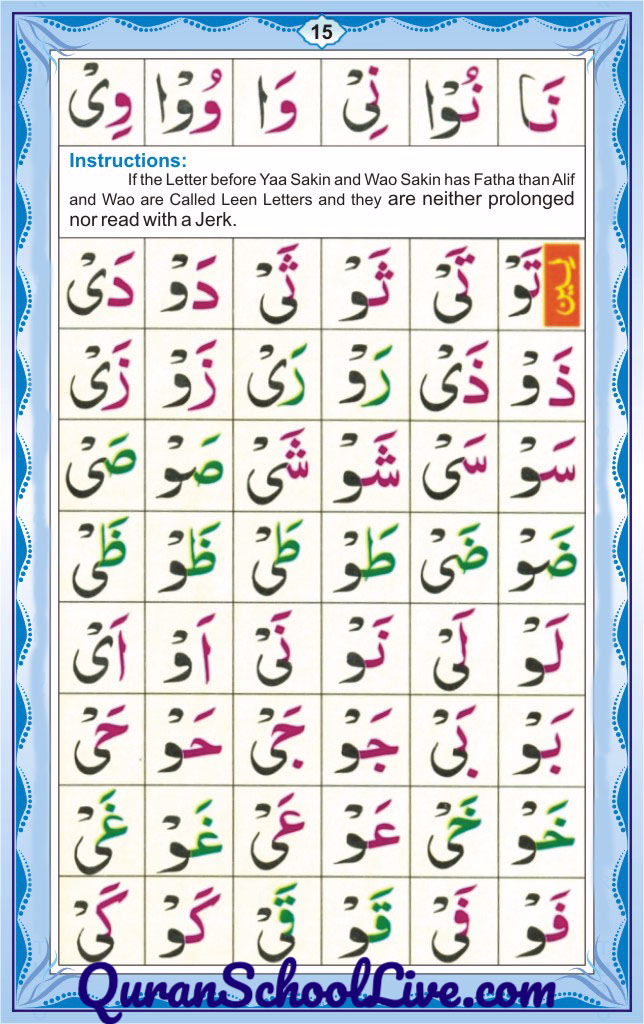 15
نَا نُوْا نِیْ وَا وُوْا وِیْ
Instructions:
If the Letter before Yaa Sakin and Wao Sakin has Fatha than Alif
and Wao are Called Leen Letters and they are neither prolonged
nor read with a Jerk.
لین تَوْ تَیْ ثَوْ ثَیْ دَوْ دَیْ
ذَوْ ذَیْ رَوْ رَیْ زَوْ زَیْ
سَوْ سَیْ شَوْ شَیْ صَوْ صَیْ
ضَوْ ضَیْ طَوْ طَیْ ظَوْ ظَیْ
لَوْ لَیْ نَوْ نَیْ اَوْ اَیْ
بَوْ بَیْ جَوْ جَیْ حَوْ حَیْ
خَوْ خَیْ عَوْ عَیْ غَوْ غَیْ
فَوْ فَیْ قَوْ قَیْ گَوْ گَیْ
QuranSchoolLive.com